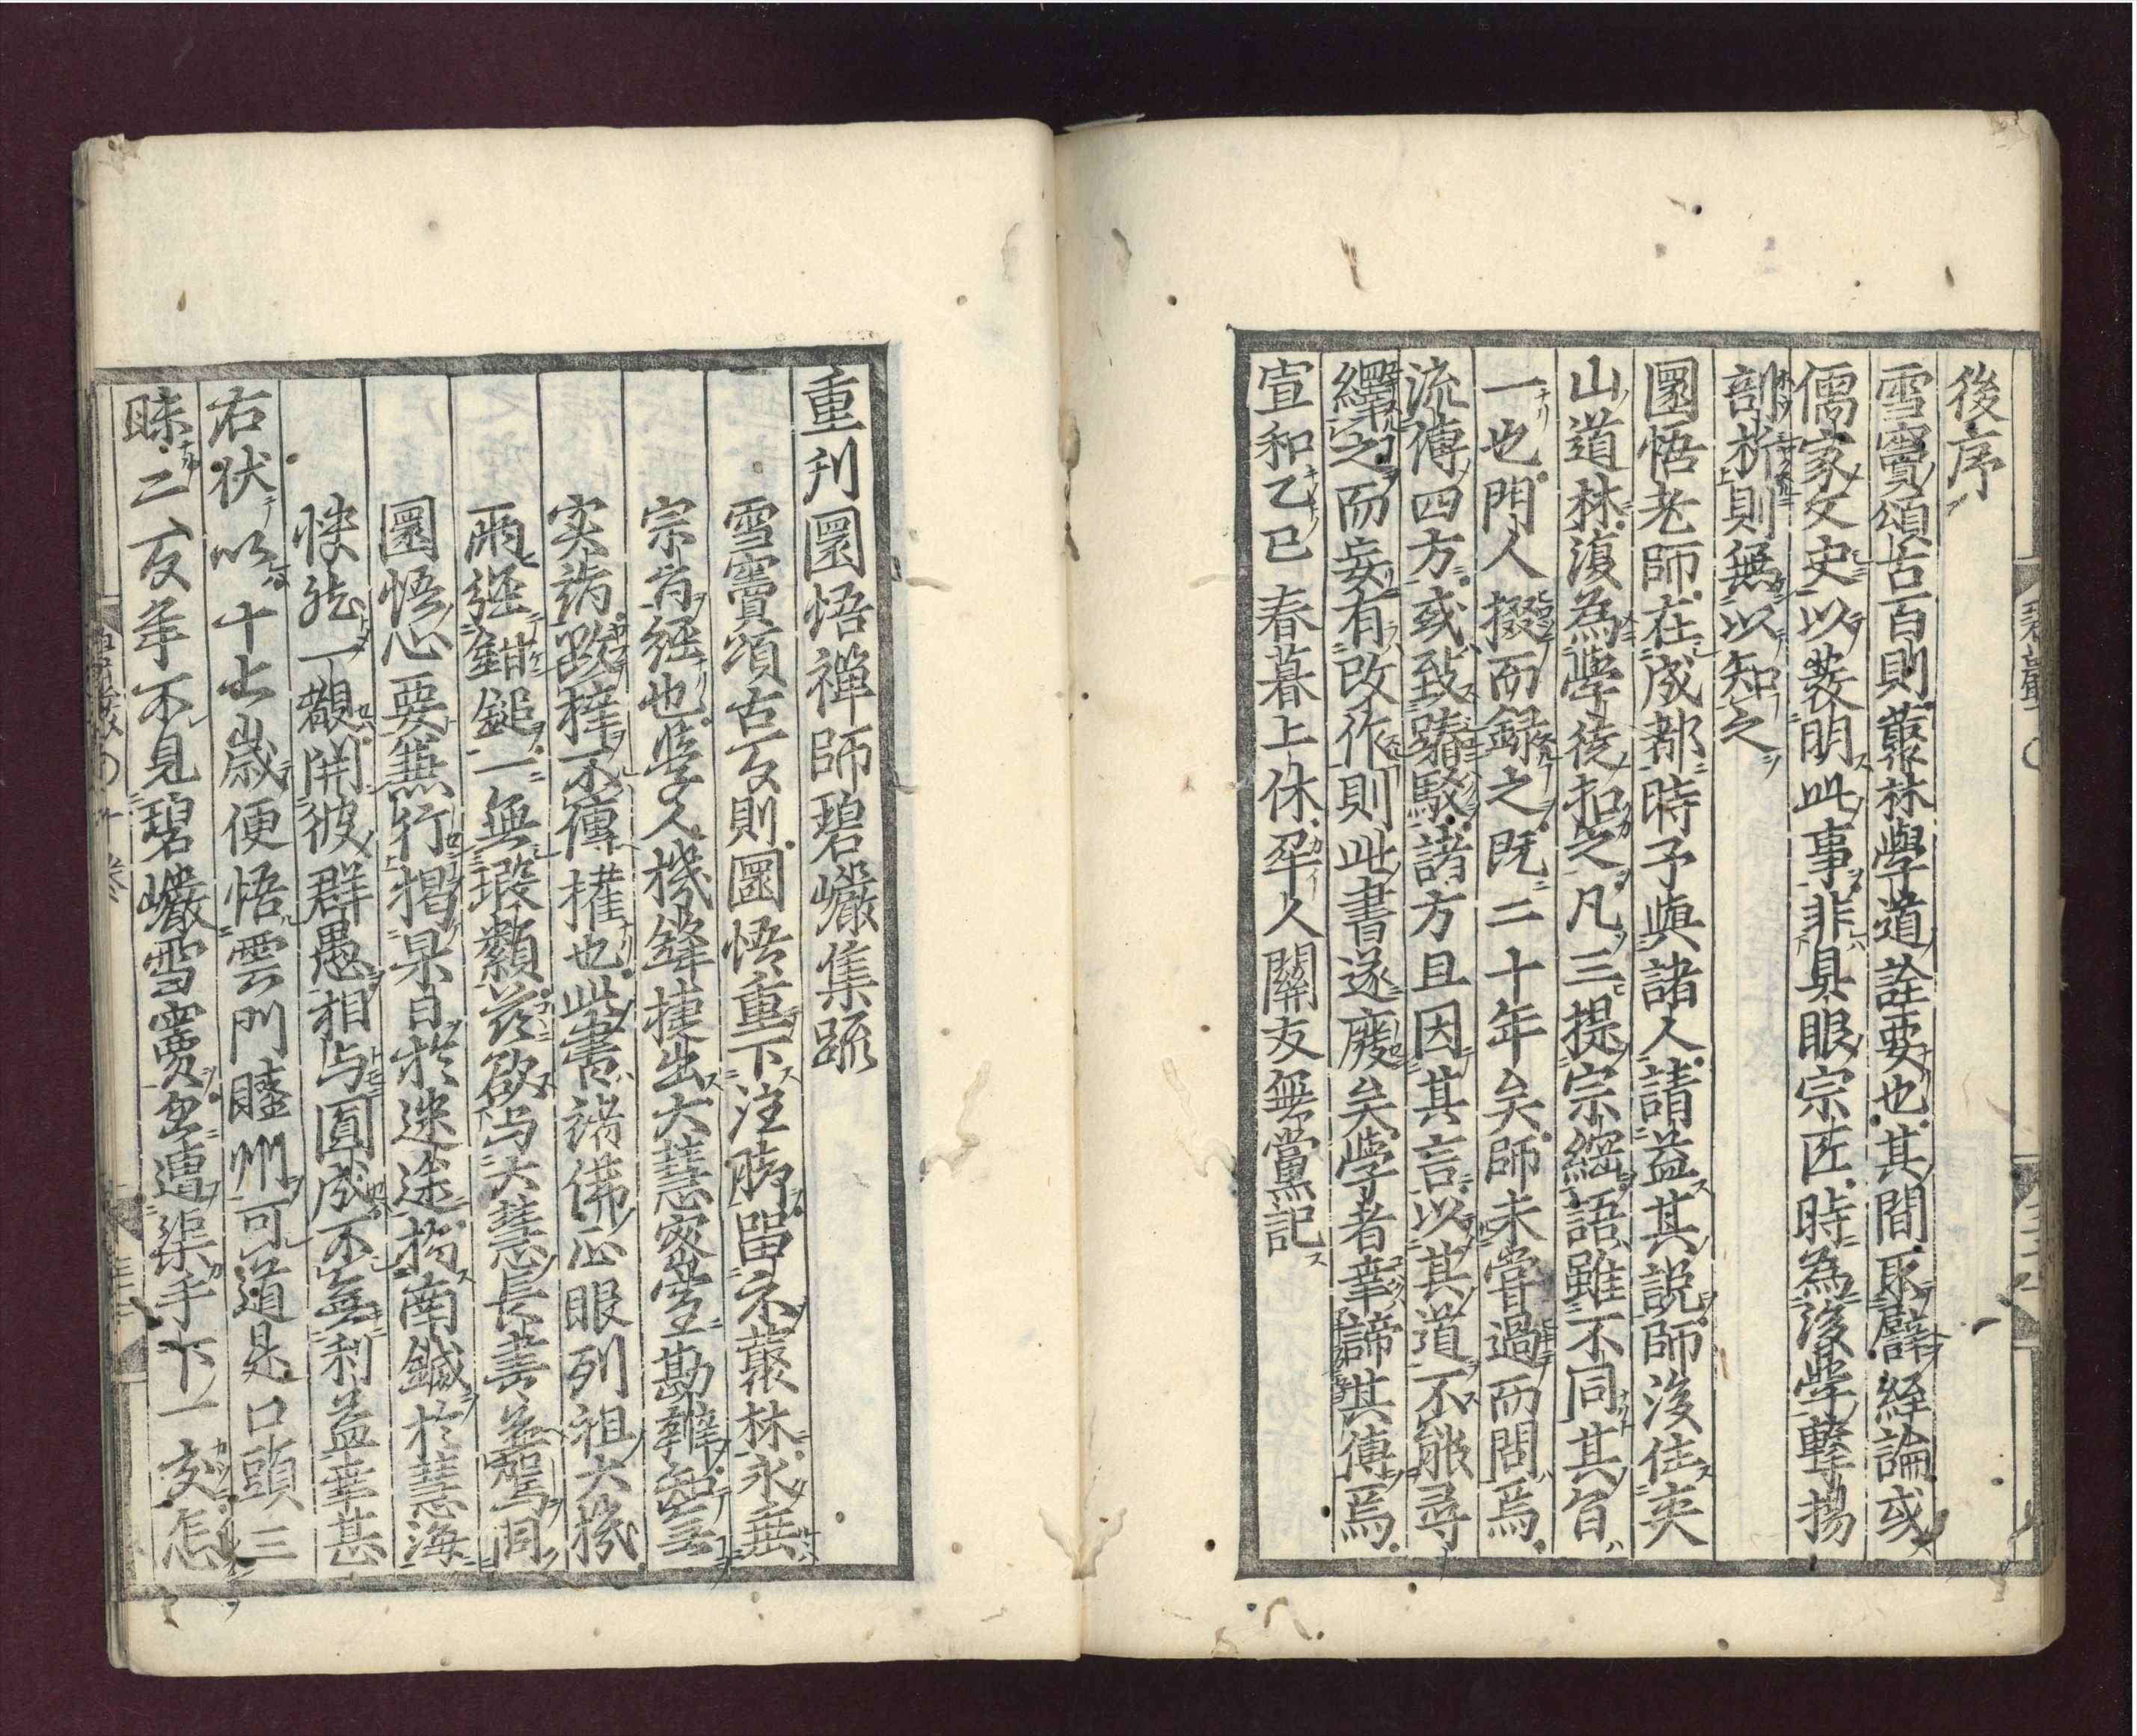 後序
雪竇頌古百則叢林學道詮要也其間取譬經論或
儒家文史以發明此事非具眼宗匠時為後學擊揚
剖析則無以知之
圜悟老師在成都時予與諸人請益其說師後住夾
山道林復為學徒扣之凡三提宗綱語雖不同其旨
一也門人掇而録之既二十年矣師未甞過而問焉
流傳四方或致踳駁諸方且因其言以其道不能尋
繹之而妄有改作則此書遂廢矣學者幸諦其傳焉
宣和乙巳春暮上休犂人關友無黨記
重刊圜悟禪師碧巖集疏
雪竇頌古百則圜悟重下注脚單示叢林永垂
宗旨經也學人機鋒捷出大慧密室勘辨知無
实詣毀梓不傳權也此書諸佛正眼列祖大機
兩經鉗鎚一無瑕纇茲欲与大慧長書並駕同
圜悟心要兼行揭杲日於迷途指南鍼於慧海
快然一覩開彼群愚相与圓成不無利益幸甚
右伏以十七歲便悟雲門睦州可道是口頭三
昧二百年不見碧巖雪竇忽遭渠手下一交怎